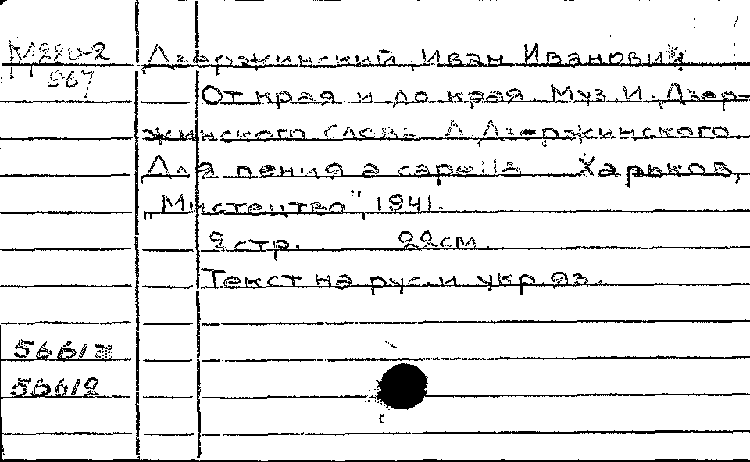 М220-2 Дзержинский, Иван Иванович
967 От края и до края Муз. И. Дзер-
жинского Слова Л. Дзержинского
Для пения a capella Харьков,
„Мистецтво", 1941.
2 стр. 22 см.
Текст на рус. и укр. яз.
56612